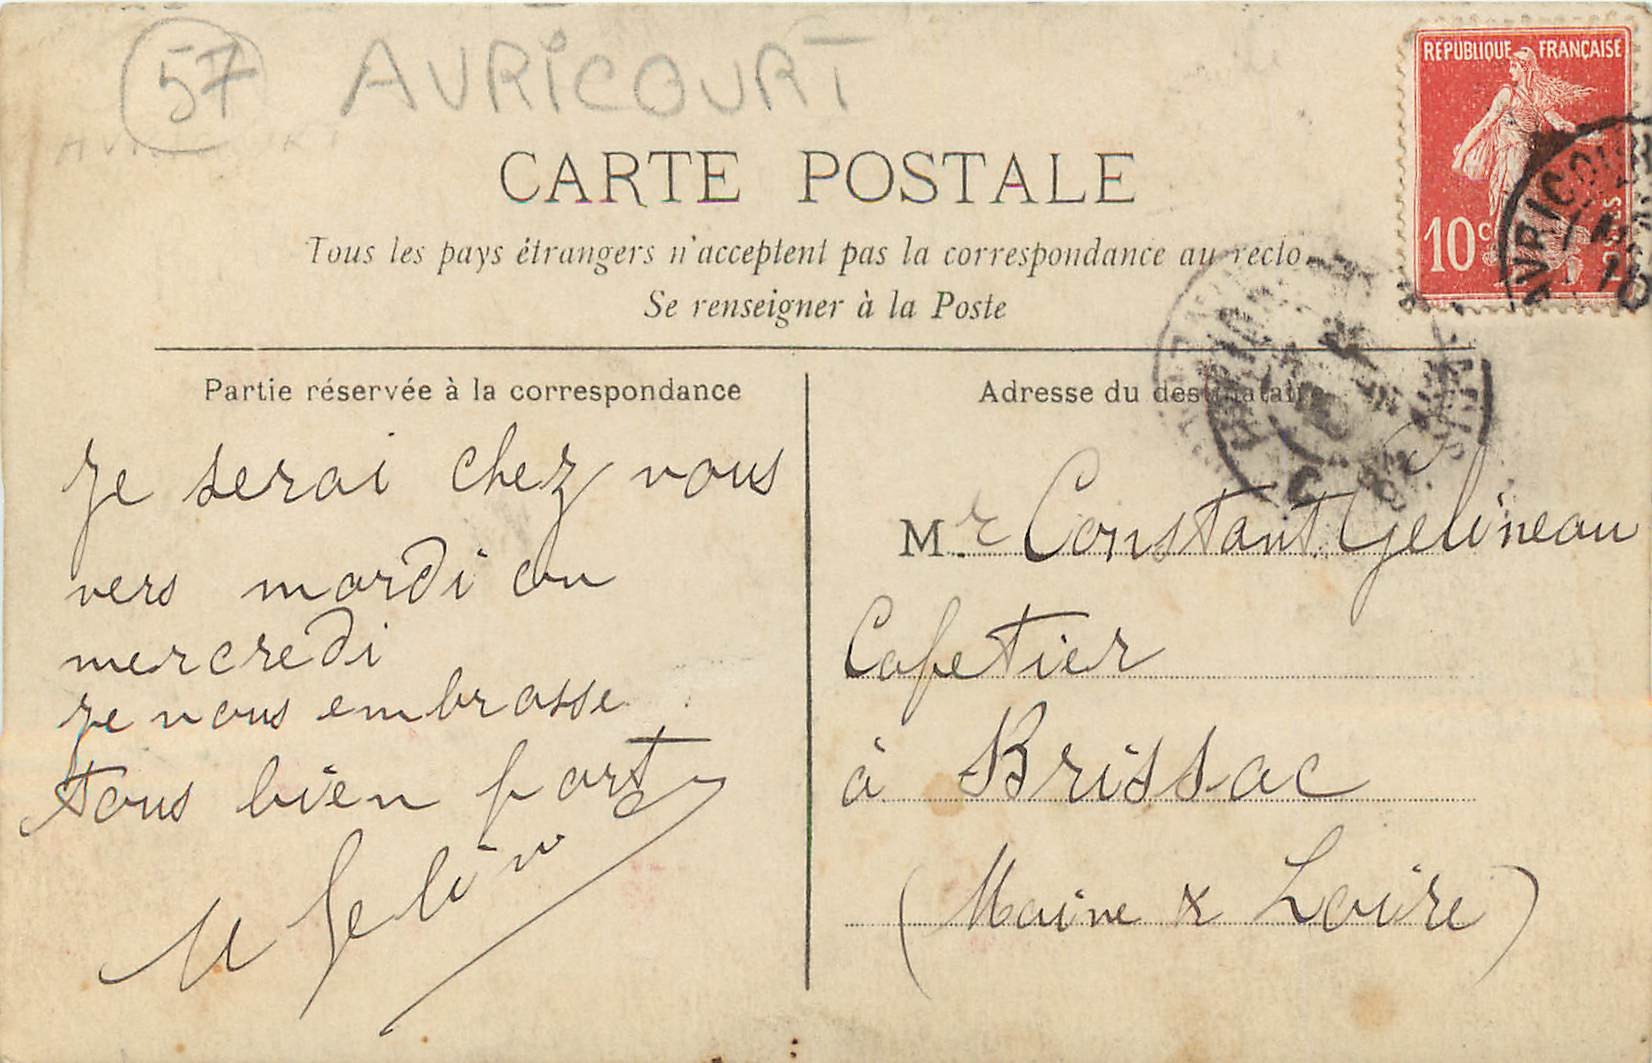 57 AVRICOURT
AVRICOURT
RÉPUBLIQUE FRANÇAISE
10c
AVRICOURT
CARTE POSTALE
Tous les pays étrangers n'acceptent pas la correspondance au recto.
Se renseigner à la Poste
Partie réservée à la correspondance
Je serai chez vous
vers mardi ou
mercredi
Je vous embrasse
tous bien fort
M Gelin
Adresse du destinataire
Mr Constant Gelineau
Cafetier
à Brissac
(Maine & Loire)